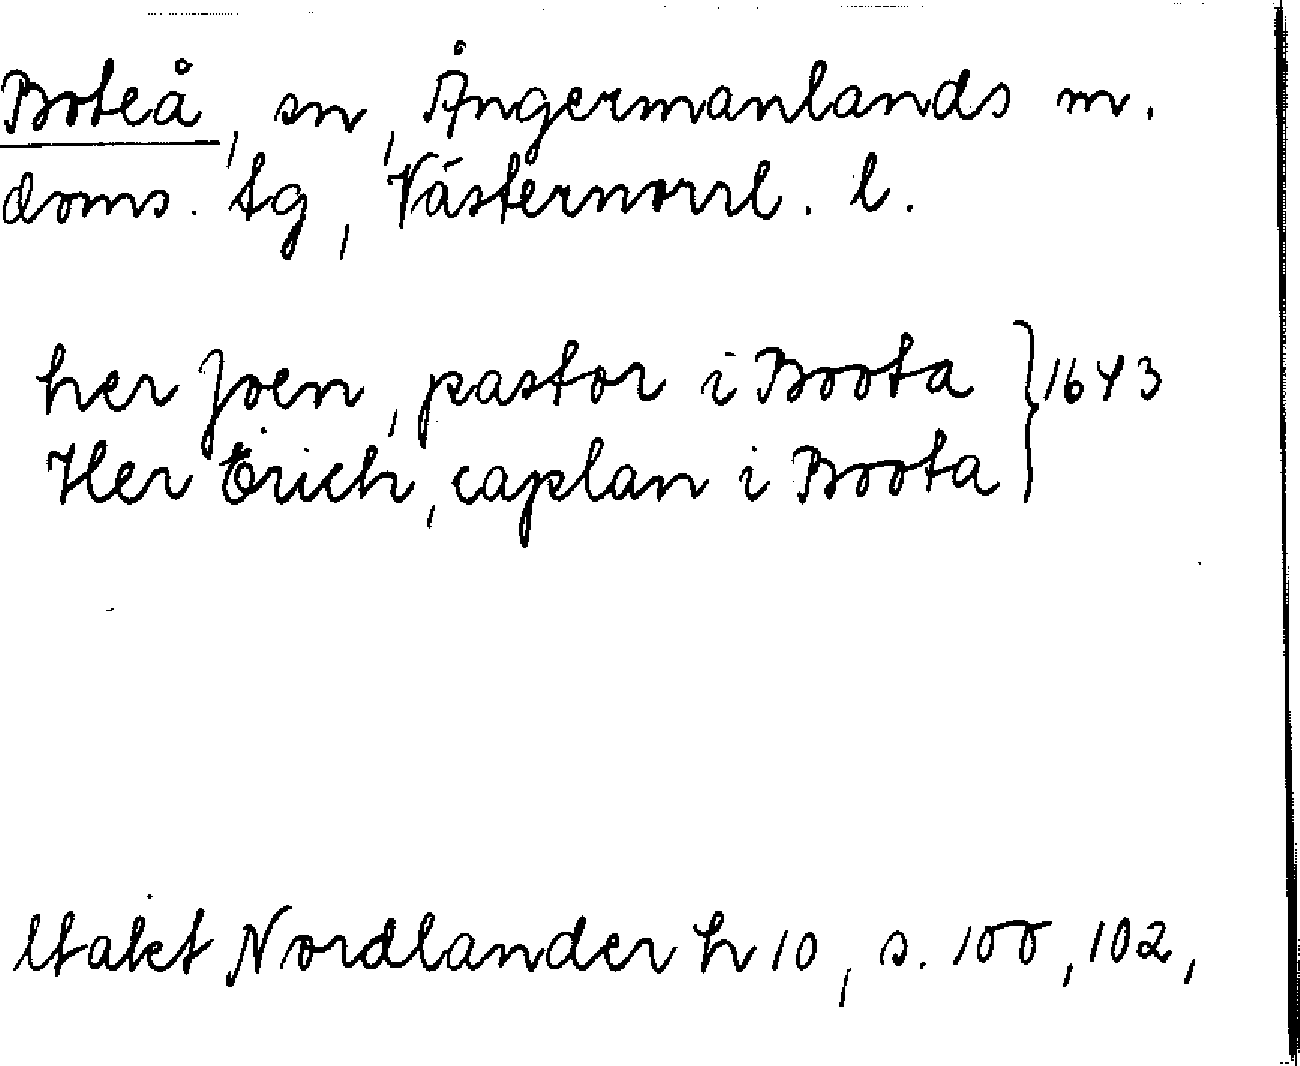 Boteå, sn, Ångermanlands m.
doms. tg, Västernorrl. l.
her Joen, pastor i Boota } 1643
Her Erich, caplan i Boota
Utakt Nordlander h 10, s. 100, 102,